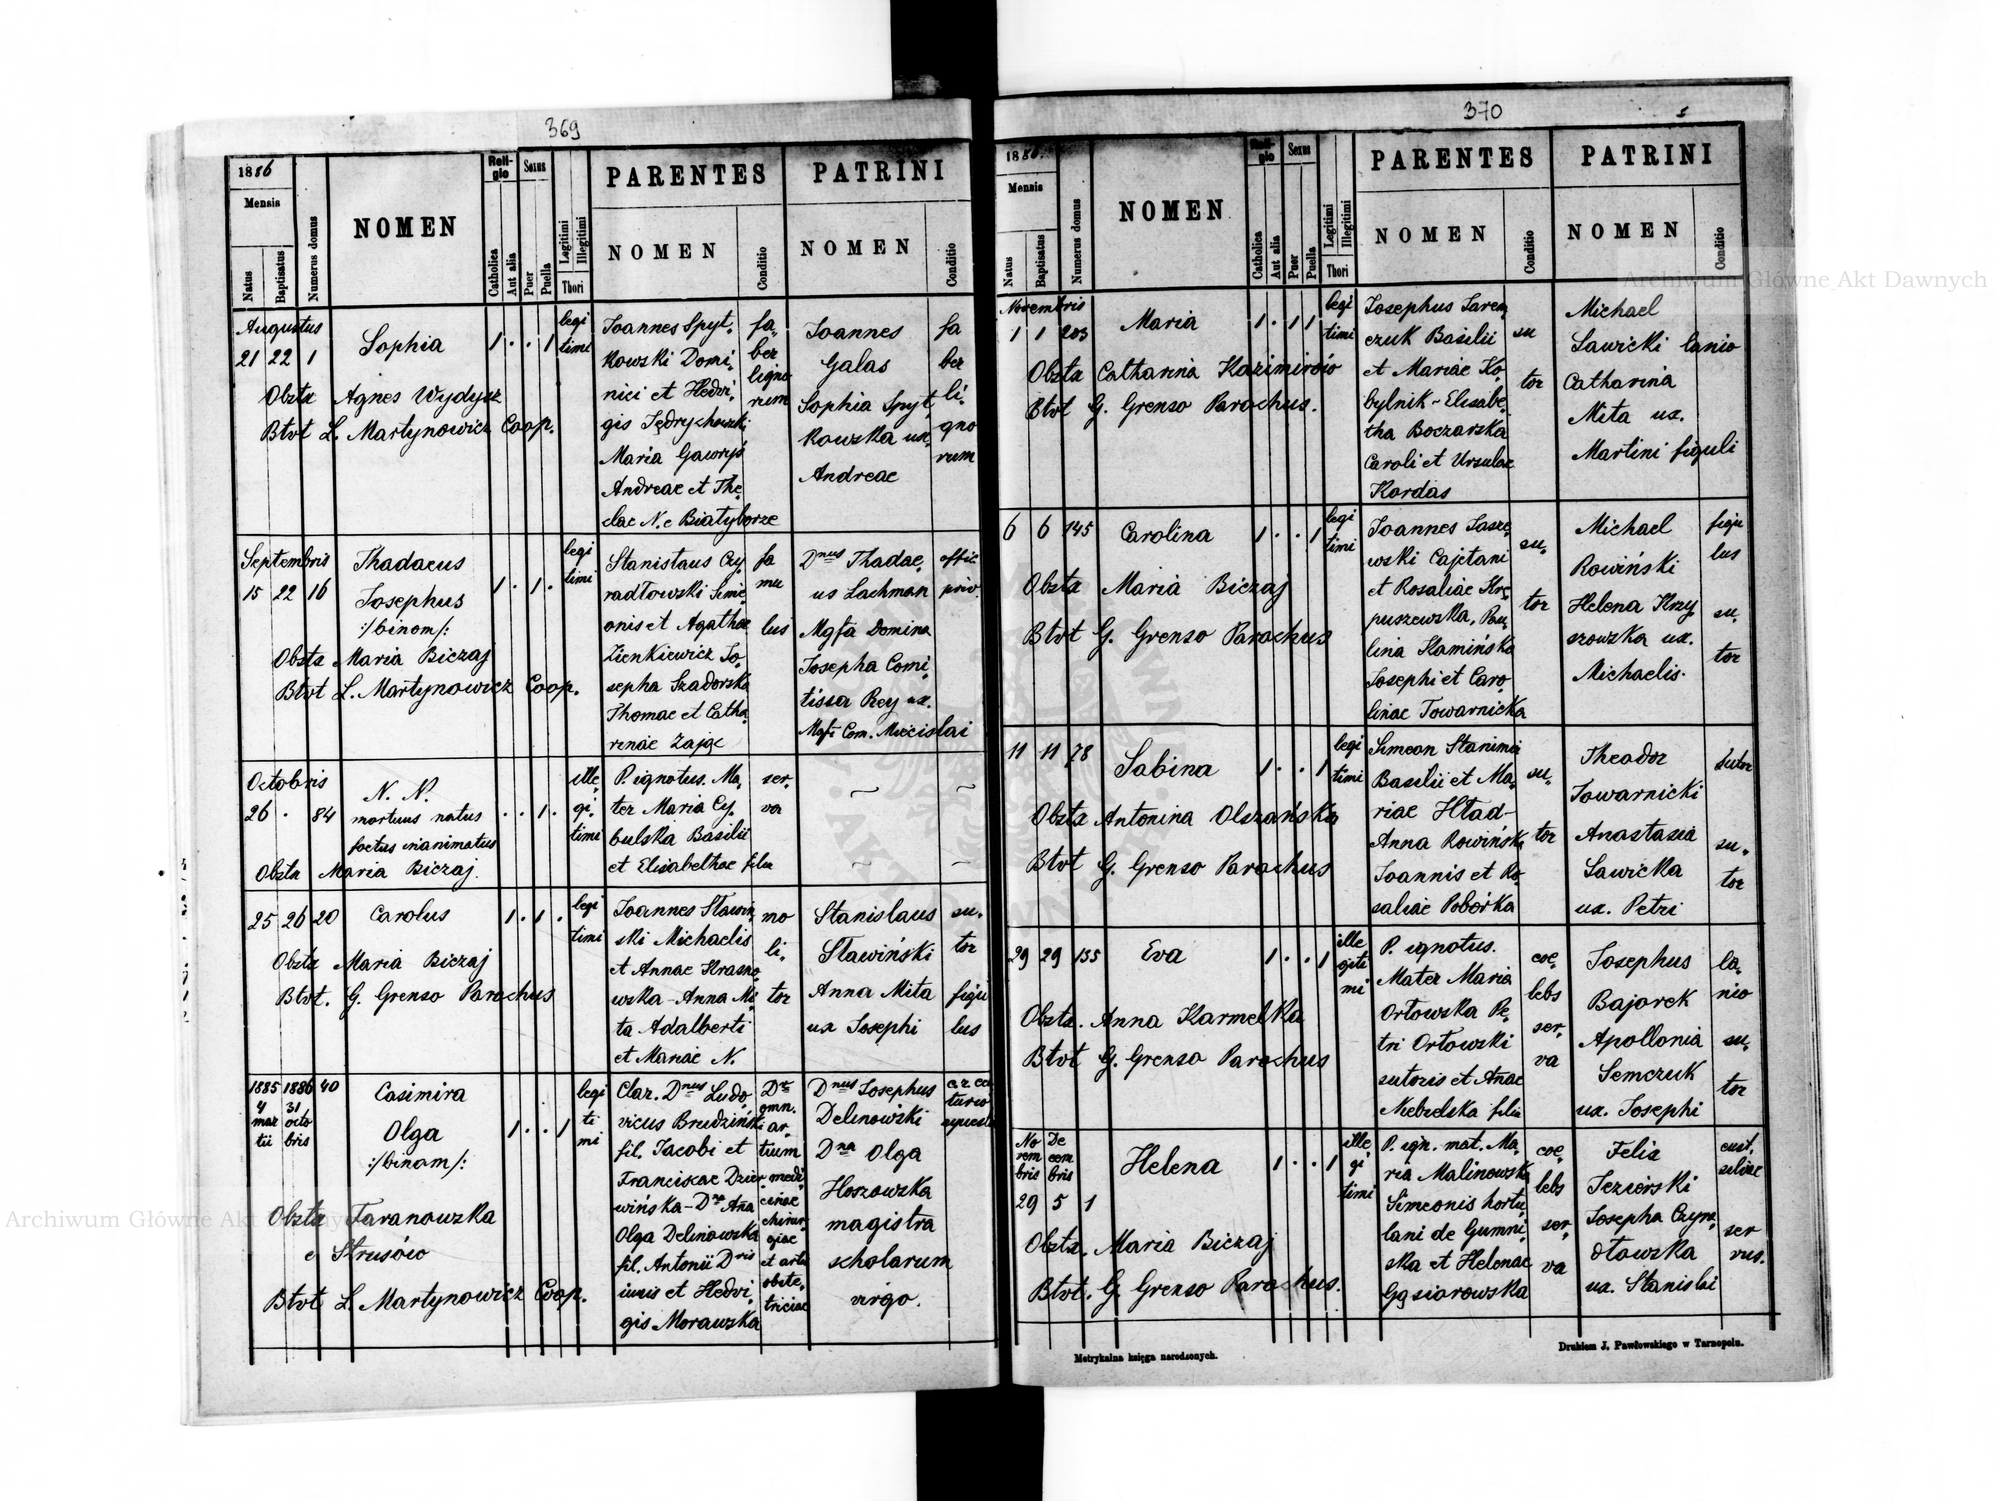 369
1886
Mensis
Natus
Baptisatus
Numerus domus
NOMEN
Religio
Catholica
Aut alia
Sexus
Puer
Puella
Legitimi
Illegitimi
Thori
PARENTES
NOMEN
Conditio
PATRINI
NOMEN
Conditio
Augustus
21 22 1
Sophia
1 . . 1
legi
timi
Obstx Agnes Wydysz
Btvt L. Martynowicz Coop.
Joannes Spyt.
kowski Domi.
nici et Hedvi.
gis Jędrychowski
Maria Gawryś
Andreae et The.
clae N. e Białyborze
fa.
ber
ligno
rum
Joannes
Galas
Sophia Spyt
kowska ux.
Andreae
fa
ber
li.
gno
rum
Septembris
15 22 16
Thadaeus
Josephus
:/binom/:
1 . 1 .
legi
timi
Obstx Maria Biczaj
Btvt L. Martynowicz Coop.
Stanislaus Czy.
radłowski Sime
onis et Agathae
Zienkiewicz Jo.
sepha Szadorska
Thomae et Catha.
rinae Zając
fa
mu
lus
Dnus Thadae.
us Lachman
Mgfa Domina
Josepha Comi.
tissa Rey ux.
Mgfi Com. Miecislai
offic.
priv.
Octobris
26 . 84
N. N.
mortuus natus
foetus inanimatus
. . 1 .
ille.
gi.
timi
Obstx Maria Biczaj.
P. ignotus. Ma.
ter Maria Cy.
bulska Basilii
et Elisabethae filia
ser.
va
25 26 20
Carolus
1 . 1 .
legi
timi
Obstx Maria Biczaj
Btvt. G. Grenso Parochus
Joannes Sławiń
ski Michaelis
et Annae Krasno
wska - Anna Mi.
ta Adalberti
et Mariae N.
mo
li.
tor
Stanislaus
Sławiński
Anna Mita
ux Josephi
su.
tor
figu
lus
1885 1886 40
4 31
mar octo
tii bris
Casimira
Olga
:/binom/:
1 . . 1
legi
ti
mi
Obstx Taranowska
e Strusów
Btvt L Martynowicz Coop.
Clar. Dnus Ludo.
vicus Brudziński
fil. Jacobi et
Franciscae Dzier
wińska - Dna Anna
Olga Delinowska
fil. Antonii Dris
iuris et Hedvi.
gis Morawska
Dr
omn.
ar.
tium
medi.
cinae
chirur.
giae
et artis
obste.
triciae
Dnus Josephus
Delinowski
Dna Olga
Hoszowska
magistra
scholarum
virgo.
370
1886.
Mensis
Natus
Baptisatus
Numerus domus
NOMEN
Religio
Catholica
Aut alia
Sexus
Puer
Puella
Legitimi
Illegitimi
Thori
PARENTES
NOMEN
Conditio
PATRINI
NOMEN
Conditio
Novembris
1 1 203
Maria
1 . 1 1
legi
timi
Obstx Catharina Kazimirów
Btvt G. Grenso Parochus.
Josephus Sarem
czuk Basilii
et Mariae Ko.
bylnik - Elisabe.
tha Boczarska
Caroli et Ursulae
Kordas
su
tor
Michael
Sawicki lanio
Catharina
Mita ux.
Martini figuli
6 6 145
Carolina
1 . . 1
legi
timi
Obstx Maria Biczaj
Btvt G. Grenso Parochus
Joannes Sasze.
wski Cajetani
et Rosaliae Kro.
puszewska, Pau.
lina Kamińska
Josephi et Caro.
linae Towarnicka
su.
tor
Michael
Rowiński
Helena Krzy
szowska ux.
Michaelis.
figu
lus
su.
tor
11 11 78
Sabina
1 . . 1
legi
timi
Obstx Antonina Olszańska
Btvt G. Grenso Parochus
Simeon Stanimir
Basilii et Ma.
riae Hład -
Anna Rowińska
Joannis et Ro.
saliae Poborka
su.
tor
Theodor
Towarnicki
Anastasia
Sawicka
ux. Petri
sutor
su.
tor
29 29 155
Eva
1 . . 1
ille
giti
mi
Obstx. Anna Karmelka
Btvt G. Grenso Parochus
P. ignotus.
Mater Maria
Orłowska Pe.
tri Orłowski
sutoris et Annae
Niebelska filia
coe.
lebs
ser.
va
Josephus
Bajorek
Apollonia
Semczuk
ux. Josephi
la.
nio
su.
tor
No De
vem cem
bris bris
29 5 1
Helena
1 . . 1
ille.
gi
timi
Obstx. Maria Biczaj
Btvt. G. Grenso Parochus.
P. ign. mat. Ma.
ria Malinowska
Simeonis hortu.
lani de Gumni.
ska et Helenae
Gąsiorowska
coe.
lebs
ser.
va
Felix
Jezierski
Josepha Czyra.
dłowska
ux. Stanislai
cust.
silvae
ser
vus.
Metrykalna księga narodzonych.
Drukiem J. Pawłowskiego w Tarnopolu.
Archiwum Główne Akt Dawnych
Archiwum Główne Akt Dawnych